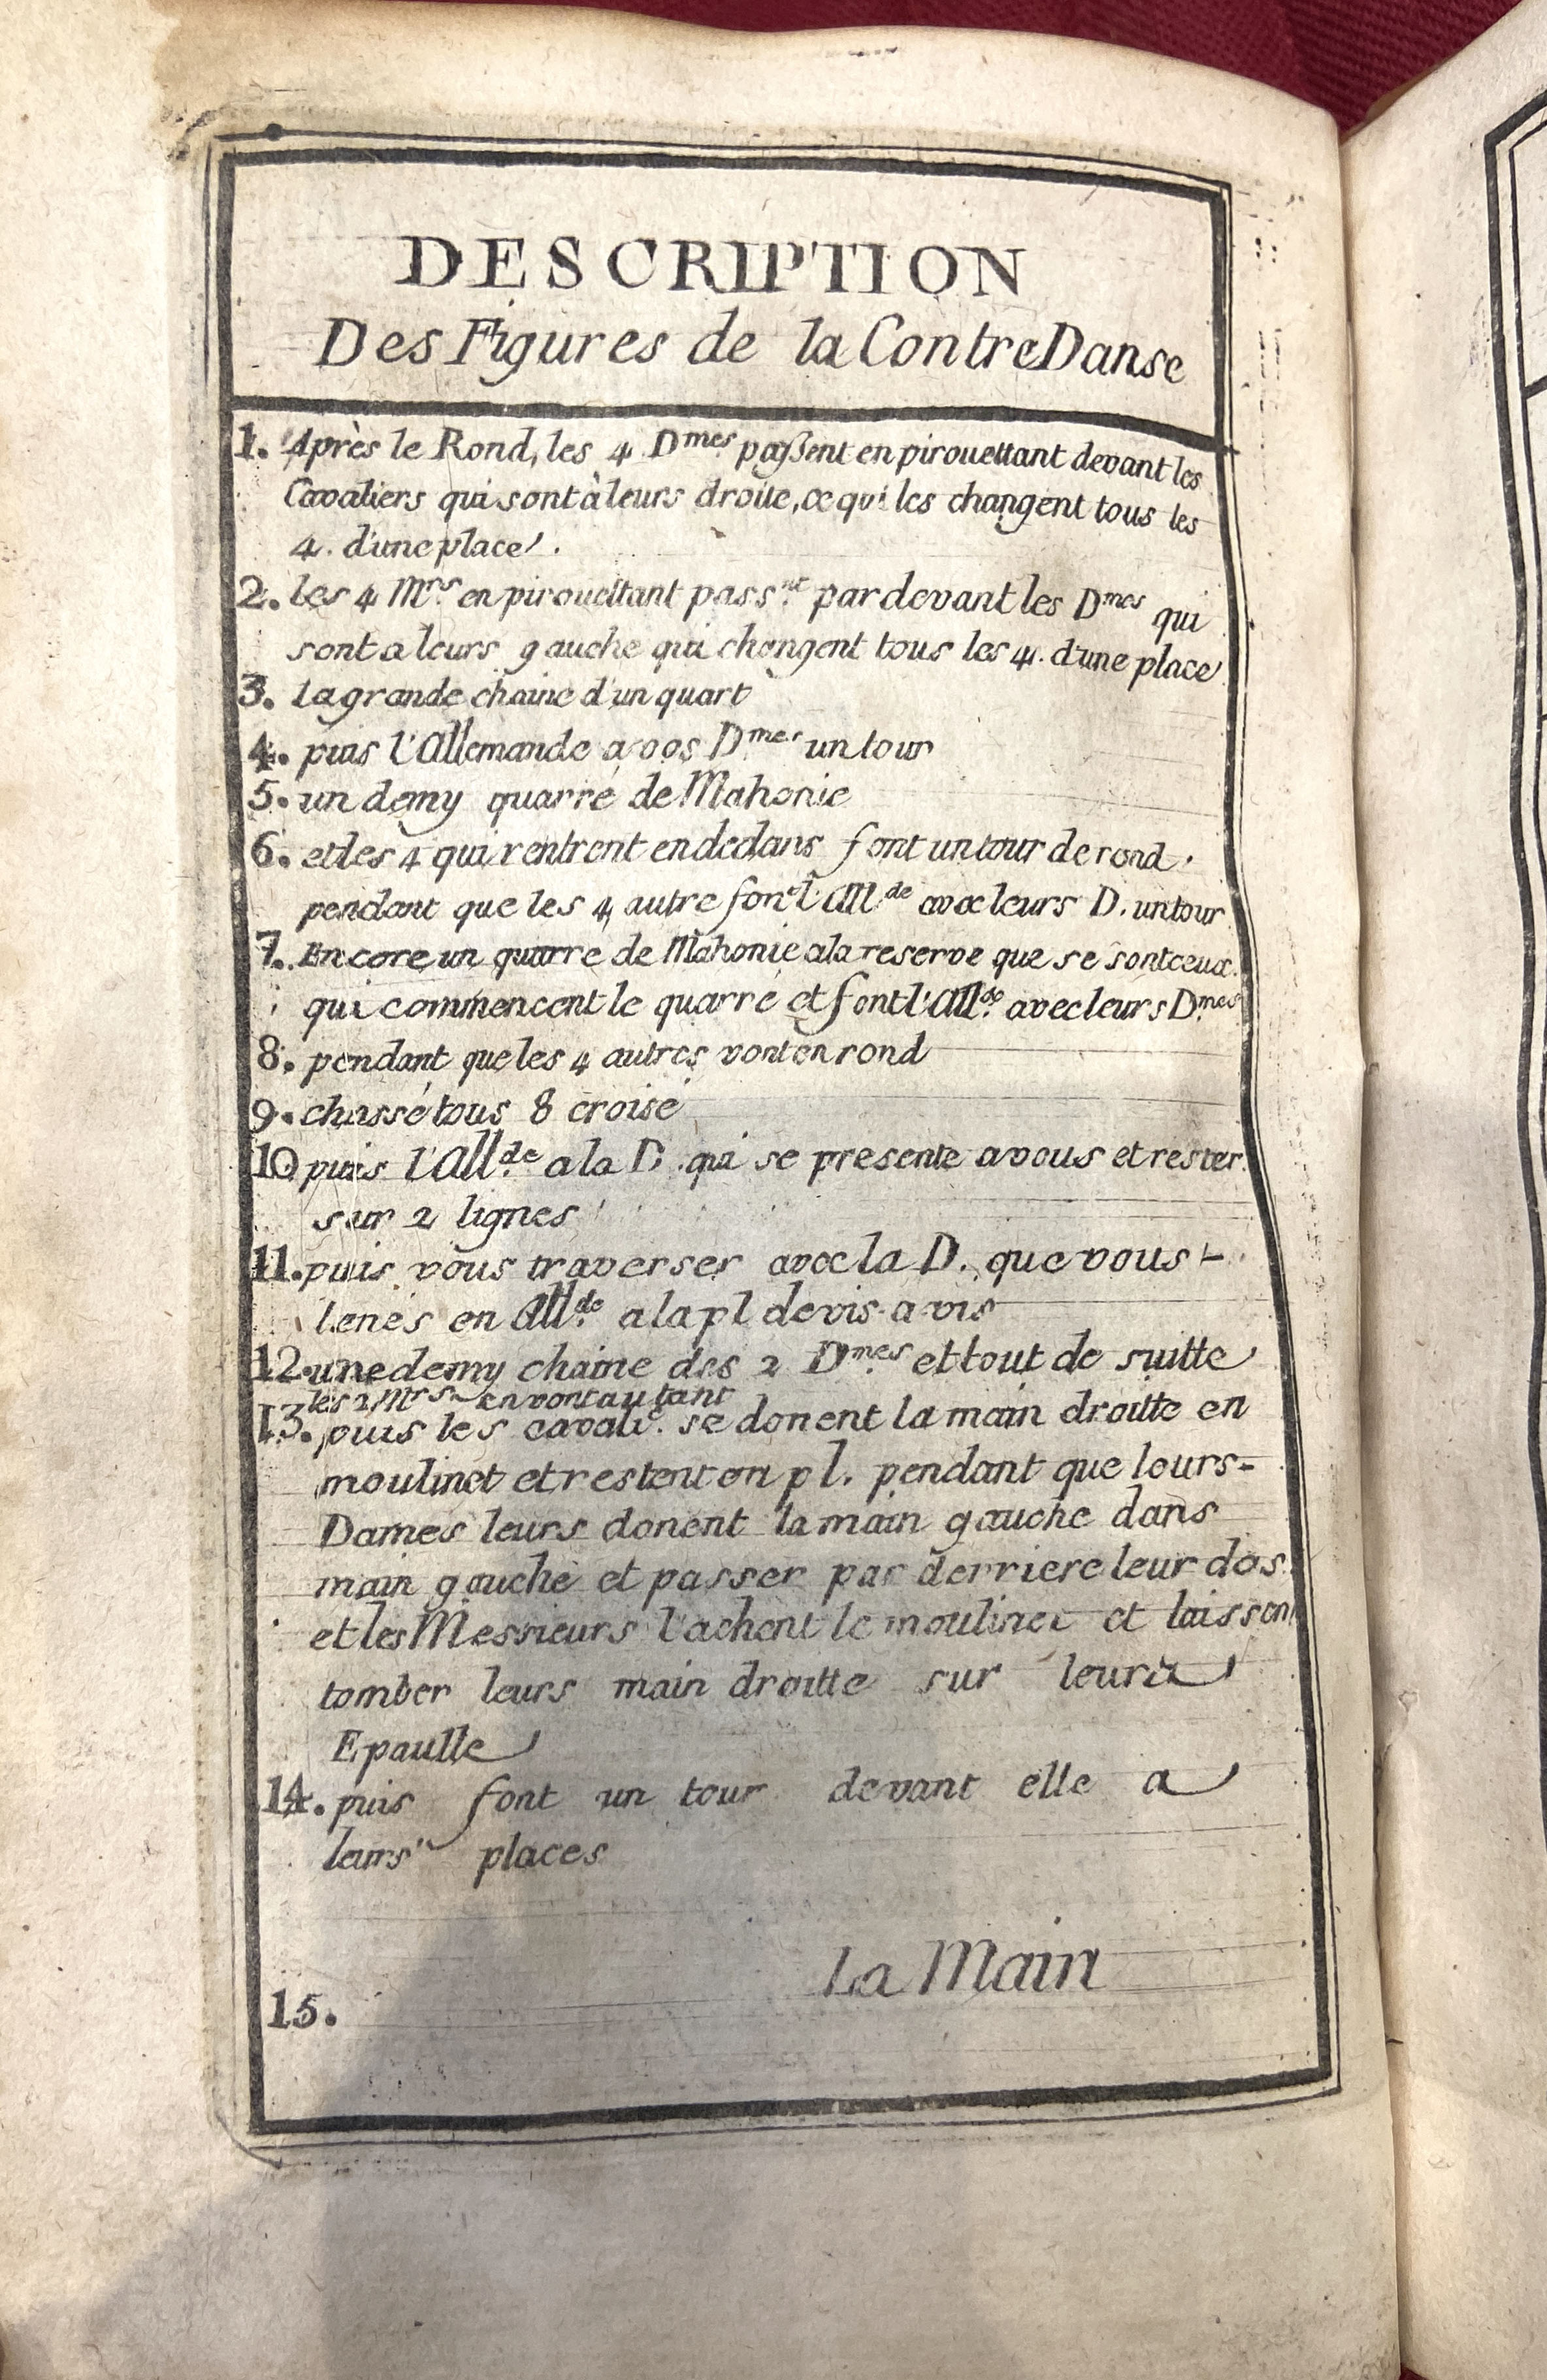 DESCRIPTION
Des Figures de la Contre Danse
1. Après le Rond, les 4 Dmes passent en pirouettant devant les
Cavaliers qui sont à leurs droite, ce qui les changent tous les
4. d'une place.
2. les 4 Mrs en pirouettant passnt par devant les Dmes qui
sont a leurs gauche qui changent tous les 4. d'une place
3. la grande chaine d'un quart
4. puis l'Allemande a vos Dmes un tour
5. un demy quarré de Mahonie
6. et les 4 qui rentrent en dedans font un tour de rond.
pendant que les 4 autre font l'Allde avec leurs D. un tour
7. Encore un quarre de Mahonie a la reserve que se sont ceux
qui commencent le quarré et font l'Allde avec leurs Dmes
8. pendant que les 4 autres vont en rond
9. chassé tous 8 croisé
10 puis l'Allde a la D. qui se presente a vous et rester
sur 2 lignes
11. puis vous traverser avec la D. que vous -
tenés en Allde a la pl de vis-a-vis
12. une demy chaine des 2 Dmes et tout de suitte
les 2 Mrs en vont autant
13. puis les cavali. se donent la main droitte en
moulinet et restent en pl. pendant que leurs-
Dames leurs donent la main gauche dans
main gauche et passer par derriere leur dos
et les Messieurs l'achent le moulinet et laissent
tomber leurs main droitte sur leurs
Epaulle
14. puis font un tour devant elle a
leurs places
La Main
15.